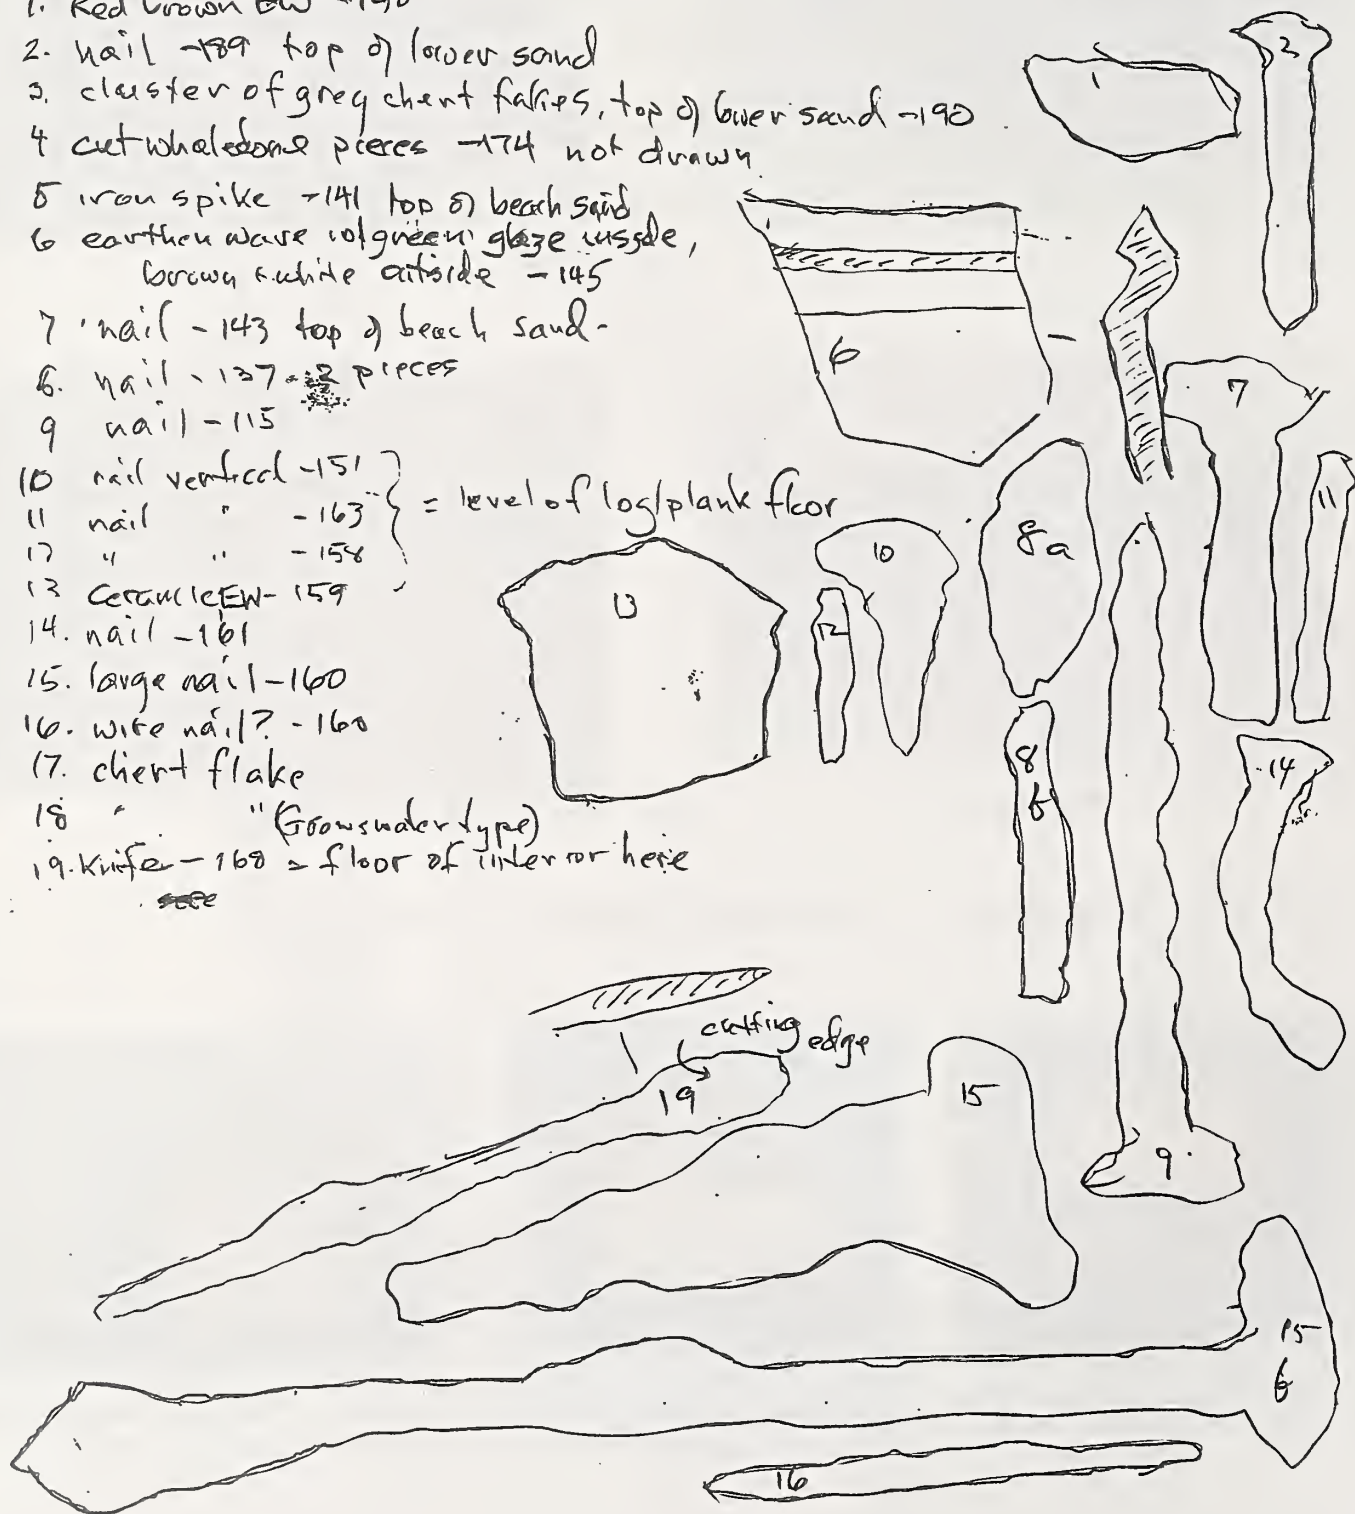 1. Red brown EW -190
2. nail -189 top of lower sand
3. cluster of grey chert flakes, top of lower sand -190
4 cut whalebone pieces -174 not drawn
5 iron spike -141 top of beach sand
6 earthenware w/green glaze inside,
brown & white outside -145
7 nail -143 top of beach sand-
8. nail -137 2 pieces
9 nail -115
10 nail vertical -151
11 nail " -163 = level of log/plank floor
12 " " -158
13 Ceramic EW- 159
14. nail -161
15. large nail -160
16. wire nail? -160
17. chert flake
18 " " (Groswater type)
19. Knife -168 = floor of interior here
1
2
6
7
11
8a
10
12
13
8
b
14
cutting edge
19
15
9
15
b
16